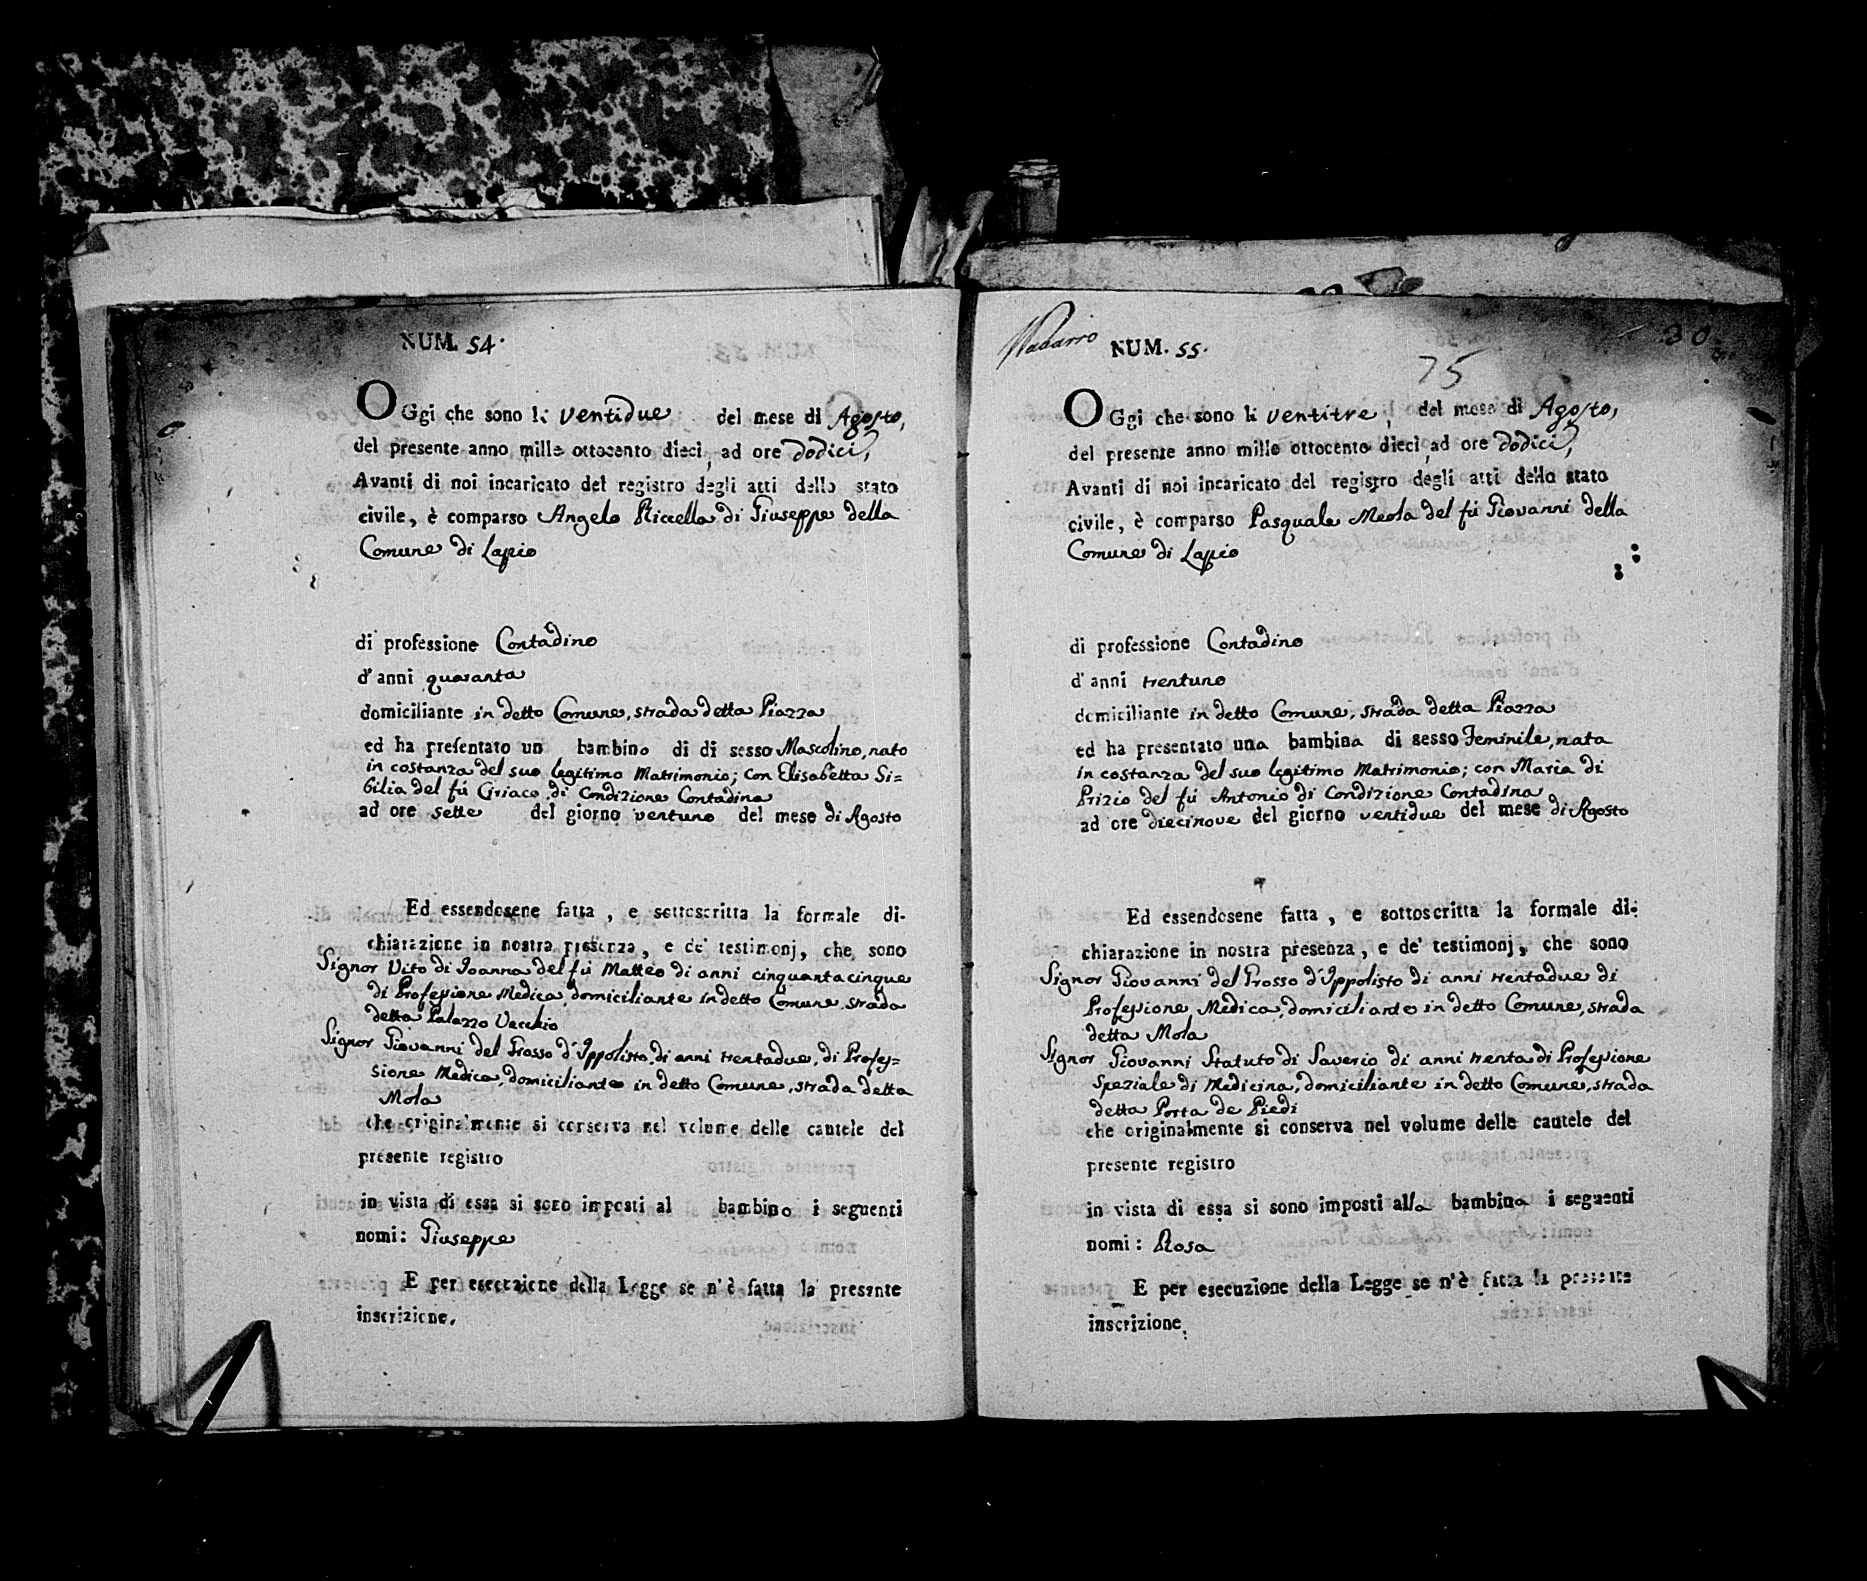 NUM. 54.
OGgi che sono li ventidue del mese di Agosto,
del presente anno mille ottocento dieci, ad ore dodici,
Avanti di noi incaricato del registro degli atti dello stato
civile, è comparso Angelo Riccella di Giuseppe della
Comune di Lapio
di professione Contadino
d'anni quaranta
domiciliante in detto Comune, strada detta Piazza
ed ha presentato un bambino di di sesso Mascolino, nato
in costanza del suo legitimo Matrimonio; con Elisabetta Si=
bilia del fú Ciriaco di Condizione Contadina
ad ore sette del giorno ventuno del mese di Agosto
Ed essendosene fatta, e sottoscritta la formale di-
chiarazione in nostra presenza, e de' testimonj, che sono
Signor Vito di Joanna del fú Matteo di anni cinquantacinque
di Professione Medica, domiciliante in detto Comune, strada
detta Palazzo Vecchio
Signor Giovanni del Grosso d'Ippolisto, di anni trentadue, di Profes=
sione Medica, domiciliante in detto Comune, strada detta
Mola
che originalmente si conserva nel volume delle cautele del
presente registro
in vista di essa si sono imposti al bambino i seguenti
nomi: Giuseppe
E per esecuzione della Legge se n'è fatta la presente
inscrizione.
Nadarro NUM. 55.
30
75
OGgi che sono li ventitre, del mese di Agosto,
del presente anno mille ottocento dieci, ad ore dodici,
Avanti di noi incaricato del registro degli atti dello stato
civile, è comparso Pasquale Meola del fú Giovanni della
Comune di Lapio
di professione Contadino
d'anni trentuno
domiciliante in detto Comune, strada detta Piazza
ed ha presentato una bambina di sesso Feminile, nata
in costanza del suo legitimo Matrimonio; con Maria di
Prizio del fú Antonio di Condizione Contadina
ad ore diecinove del giorno ventidue del mese di Agosto
Ed essendosene fatta, e sottoscritta la formale di-
chiarazione in nostra presenza, e de' testimonj, che sono
Signor Giovanni del Grosso d'Ippolisto di anni trentadue di
Professione Medica, domiciliante in detto Comune, strada
detta Mola
Signor Giovanni Statuto di Saverio di anni trenta di Professione
Speziale di Medicina, domiciliante in detto Comune, strada
detta Porta de Piedi
che originalmente si conserva nel volume delle cautele del
presente registro
in vista di essa si sono imposti alla bambina i seguenti
nomi: Rosa
E per esecuzione della Legge se n'è fatta la presente
inscrizione.